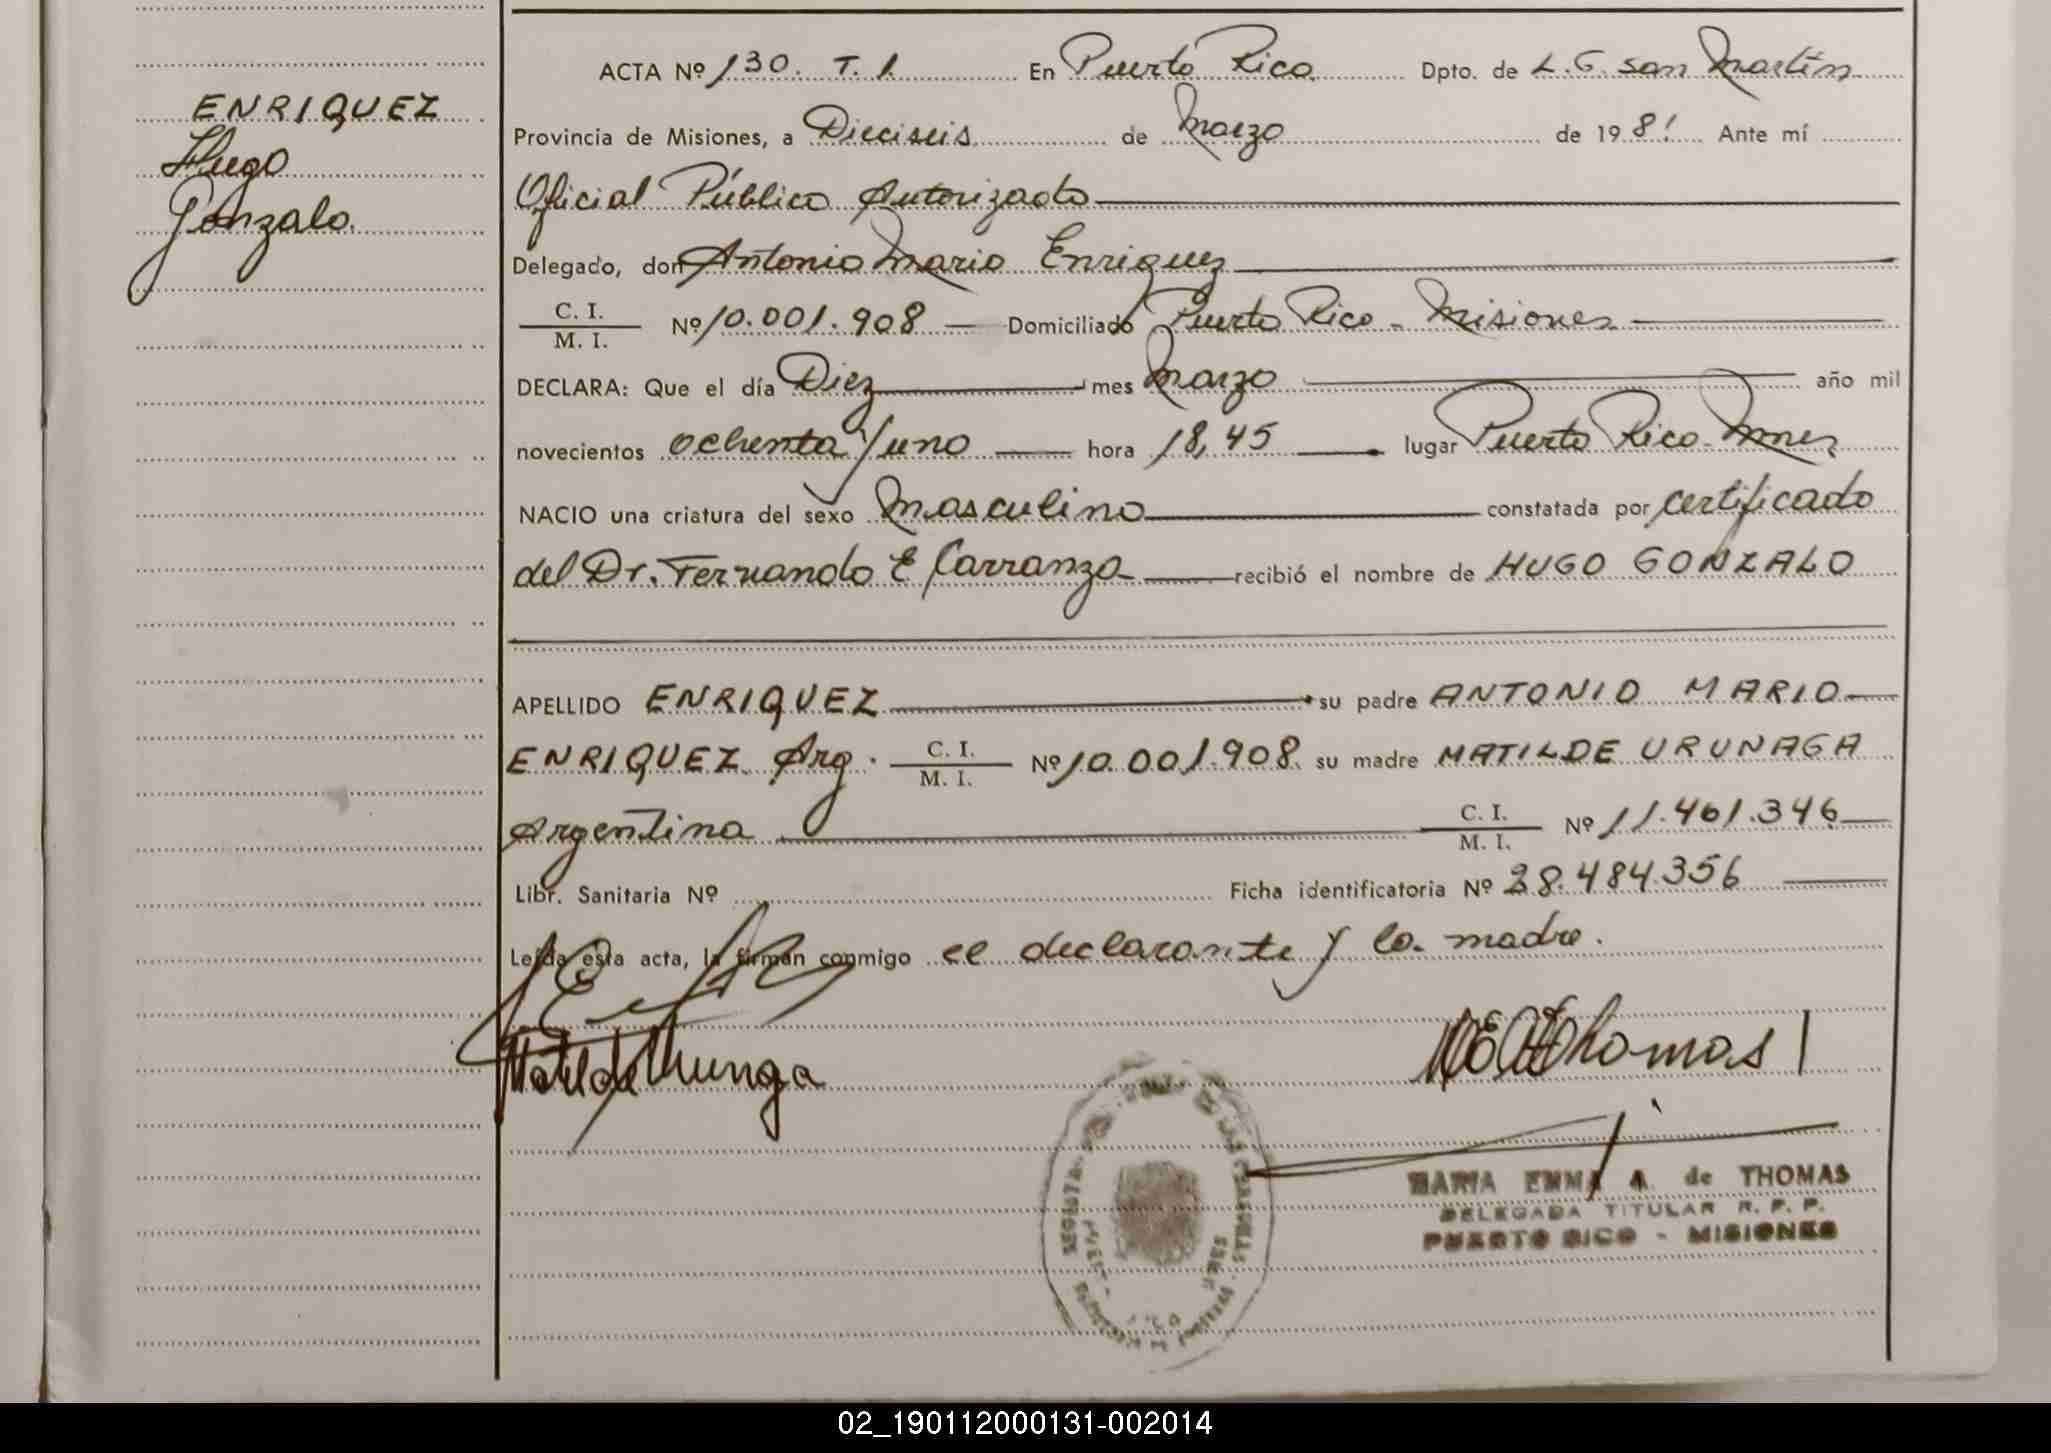 ENRIQUEZ
Hugo
Gonzalo.
ACTA Nº 130. T. 1. En Puerto Rico Dpto. de L. G. San Martín
Provincia de Misiones, a Dieciseis de Marzo de 1981 Ante mí
Oficial Público Autorizado
Delegado, don Antonio Mario Enriquez
C. I.
M. I. Nº 10.001.908 Domiciliado Puerto Rico - Misiones
DECLARA: Que el día Diez mes Marzo año mil
novecientos ochenta y uno hora 18,45 lugar Puerto Rico - Mnes
NACIO una criatura del sexo Masculino constatada por certificado
del Dr. Fernando E Carranza recibió el nombre de HUGO GONZALO
APELLIDO ENRIQUEZ su padre ANTONIO MARIO
ENRIQUEZ Arg. C. I. M. I. Nº 10.001.908 su madre MATILDE URUNAGA
Argentina C. I. M. I. Nº 11.461.346
Libr. Sanitaria Nº Ficha identificatoria Nº 28.484.356
Leída esta acta, la firman conmigo el declarante y la madre.
Matilde Urunga
Thomas
MARIA EMMA A. de THOMAS
DELEGADA TITULAR R. P. P.
PUERTO RICO - MISIONES
02_190112000131-002014